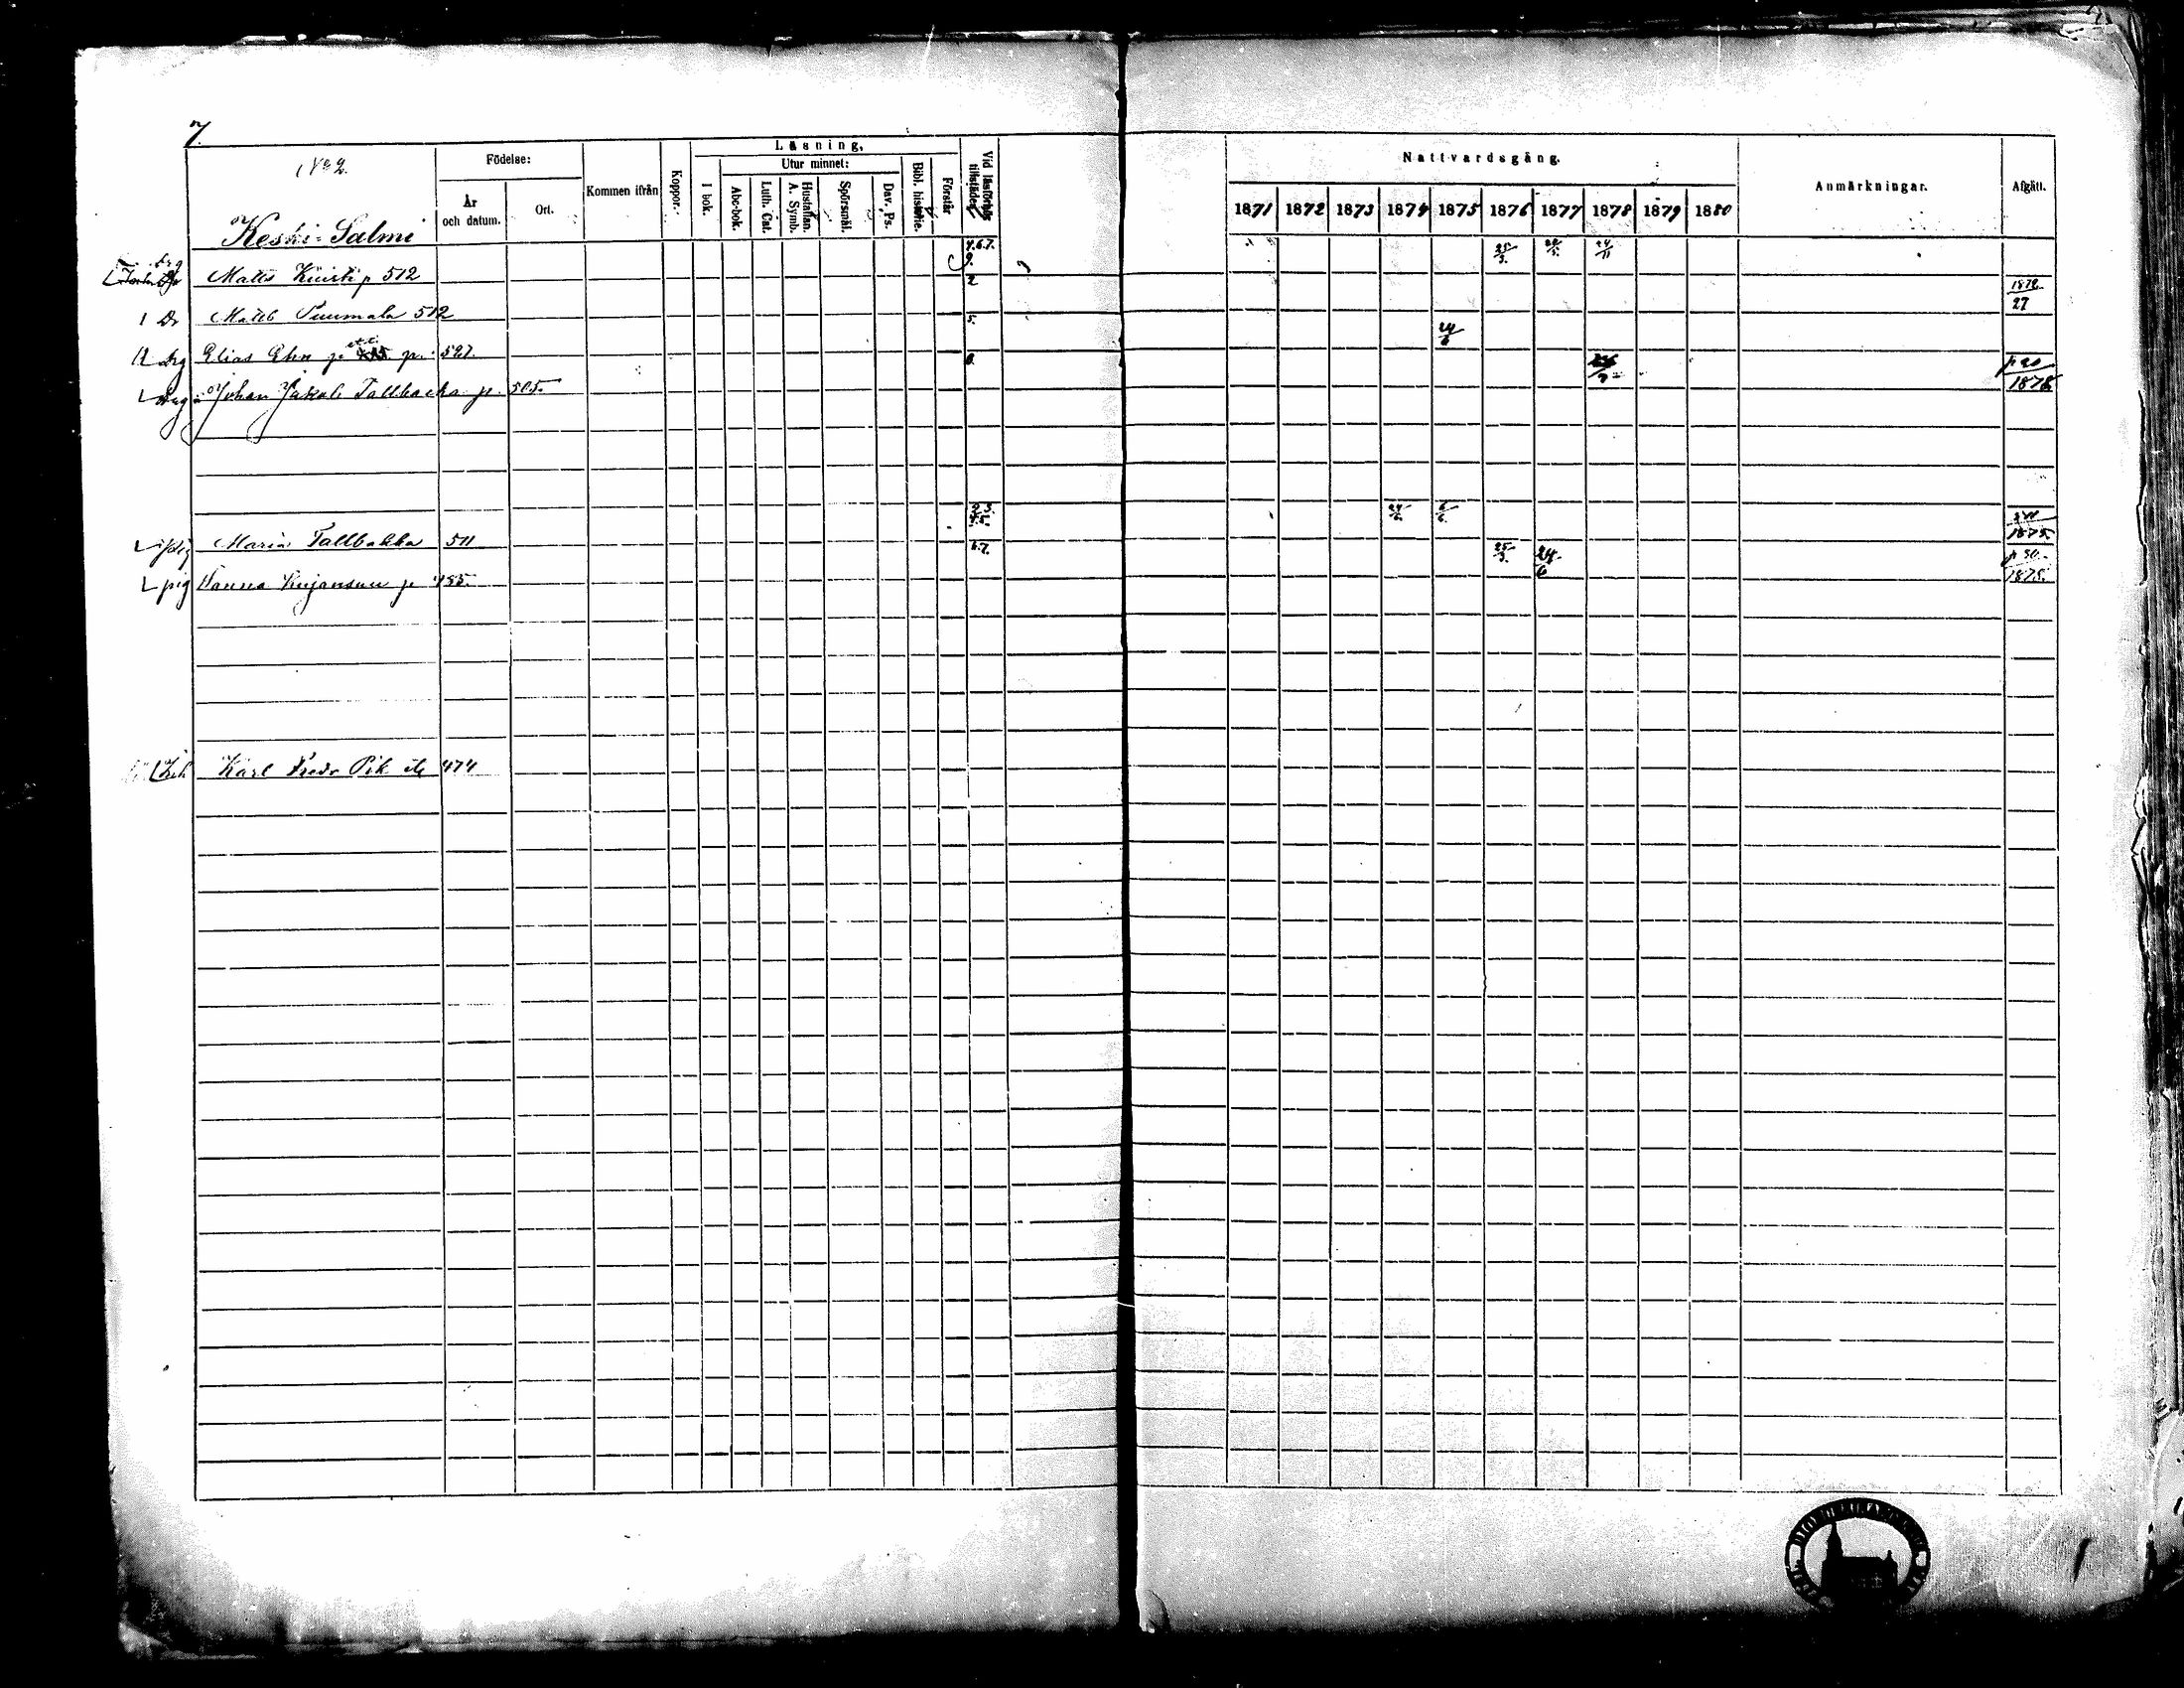 7.
No 2.
Keski-Salmi
Födelse:
År och datum.
Ort.
Kommen ifrån
Koppor.
Läsning,
I bok.
Utur minnet:
Abc-bok.
Luth. Cat.
Hustaflan. A. Symb.
Spörsmål.
Dav. Ps.
Bibl. historie.
Förstår
Vid läsförhör tillstädes
Nattvardsgång.
1871 1872 1873 1874 1875 1876 1877 1878 1879 1880
Anmärkningar.
Afgått.
4.6.7. 9. 25/3. 24/11
drg Matts p 512 2 1872 27
Dr Matts Tuumala 512 5. 24/6
drg Elias p. 527. p 20 1878
Johan Jakob Tallbacka p. 505.
2 3. 4.5. 24/6. 6/6.
pig Maria Tallbakka 511 6.7. 25/3. 24/6 1875.
pig Sanna Kujansuu p 455. p 50. 1875.
Karl Fredr Pik 474